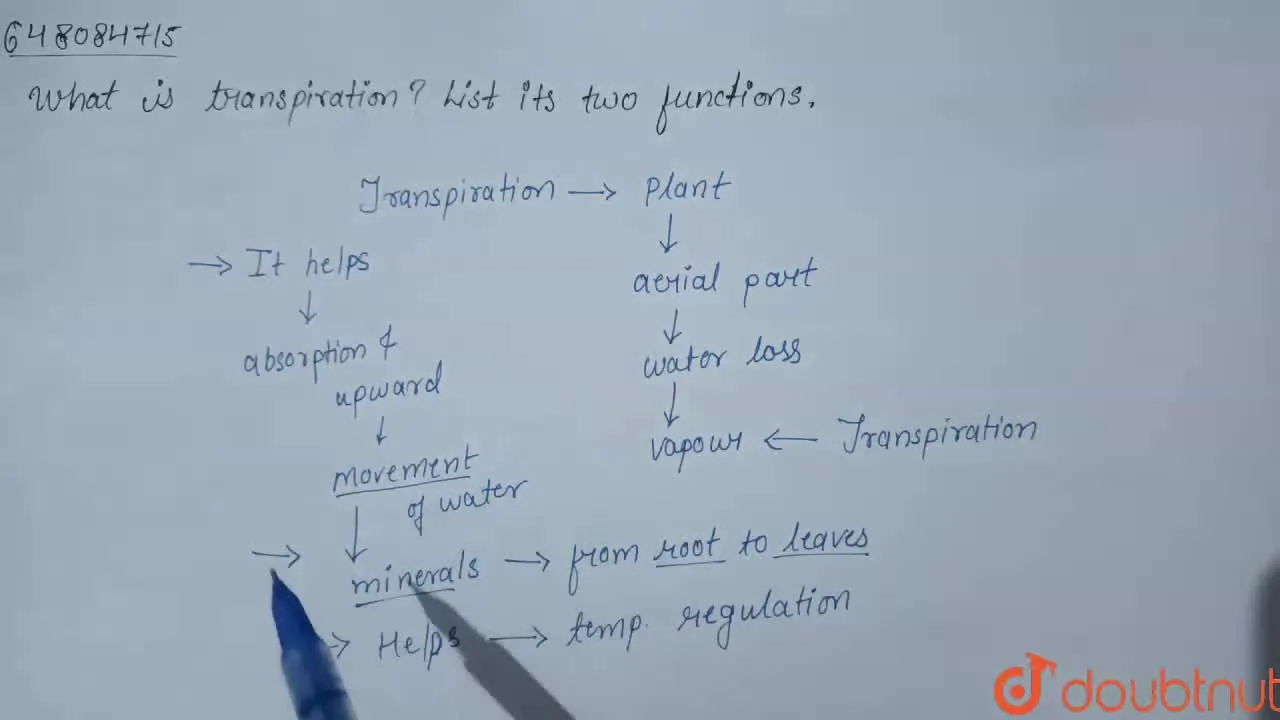 648084715
What is transpiration? List its two functions.
Transpiration → plant
↓
aerial part
↓
water loss
↓
vapour ← Transpiration
→ It helps
↓
absorption &
upward
↓
movement
of water
↓
→ minerals → from root to leaves
→ Helps → temp. regulation
doubtnut